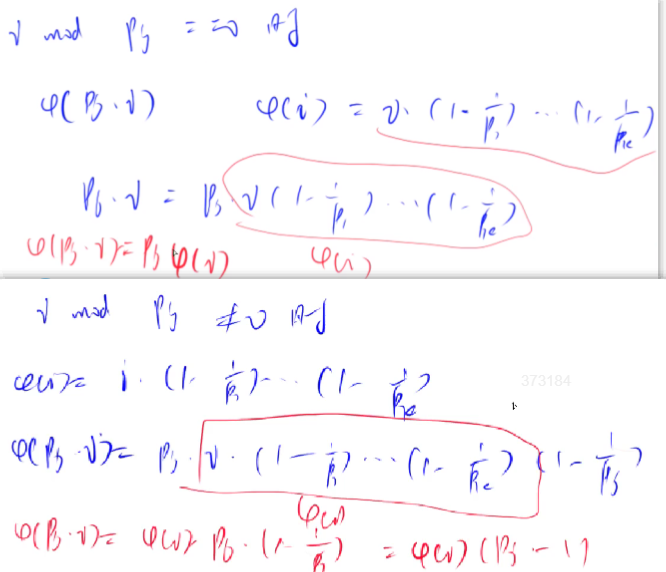 i mod Pj == 0 时
φ(Pj · i)    φ(i) = i · (1 - 1/P1) ··· (1 - 1/Pk)
Pj · i = Pj · i (1 - 1/P1) ··· (1 - 1/Pk)
φ(Pj · i) = Pj φ(i)    φ(i)
i mod Pj ≠ 0 时
φ(i) = i · (1 - 1/P1) ··· (1 - 1/Pk)
373184
φ(Pj · i) = Pj · i · (1 - 1/P1) ··· (1 - 1/Pk) (1 - 1/Pj)
φ(i)
φ(Pj · i) = φ(i) Pj · (1 - 1/Pj) = φ(i) (Pj - 1)